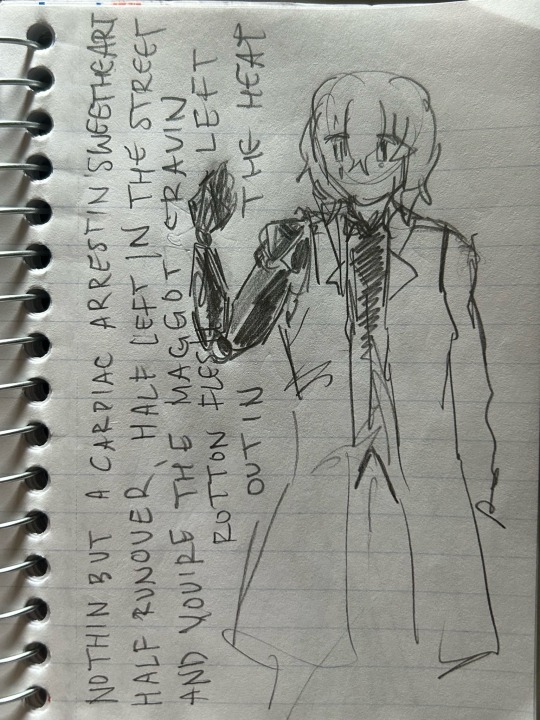 NOTHIN BUT A CARDIAC ARRESTIN SWEETHEART
HALF RUNOVER, HALF LEFT IN THE STREET
AND YOU'RE THE MAGGOT CRAVIN
ROTTON FLESH LEFT
OUT IN THE HEAT